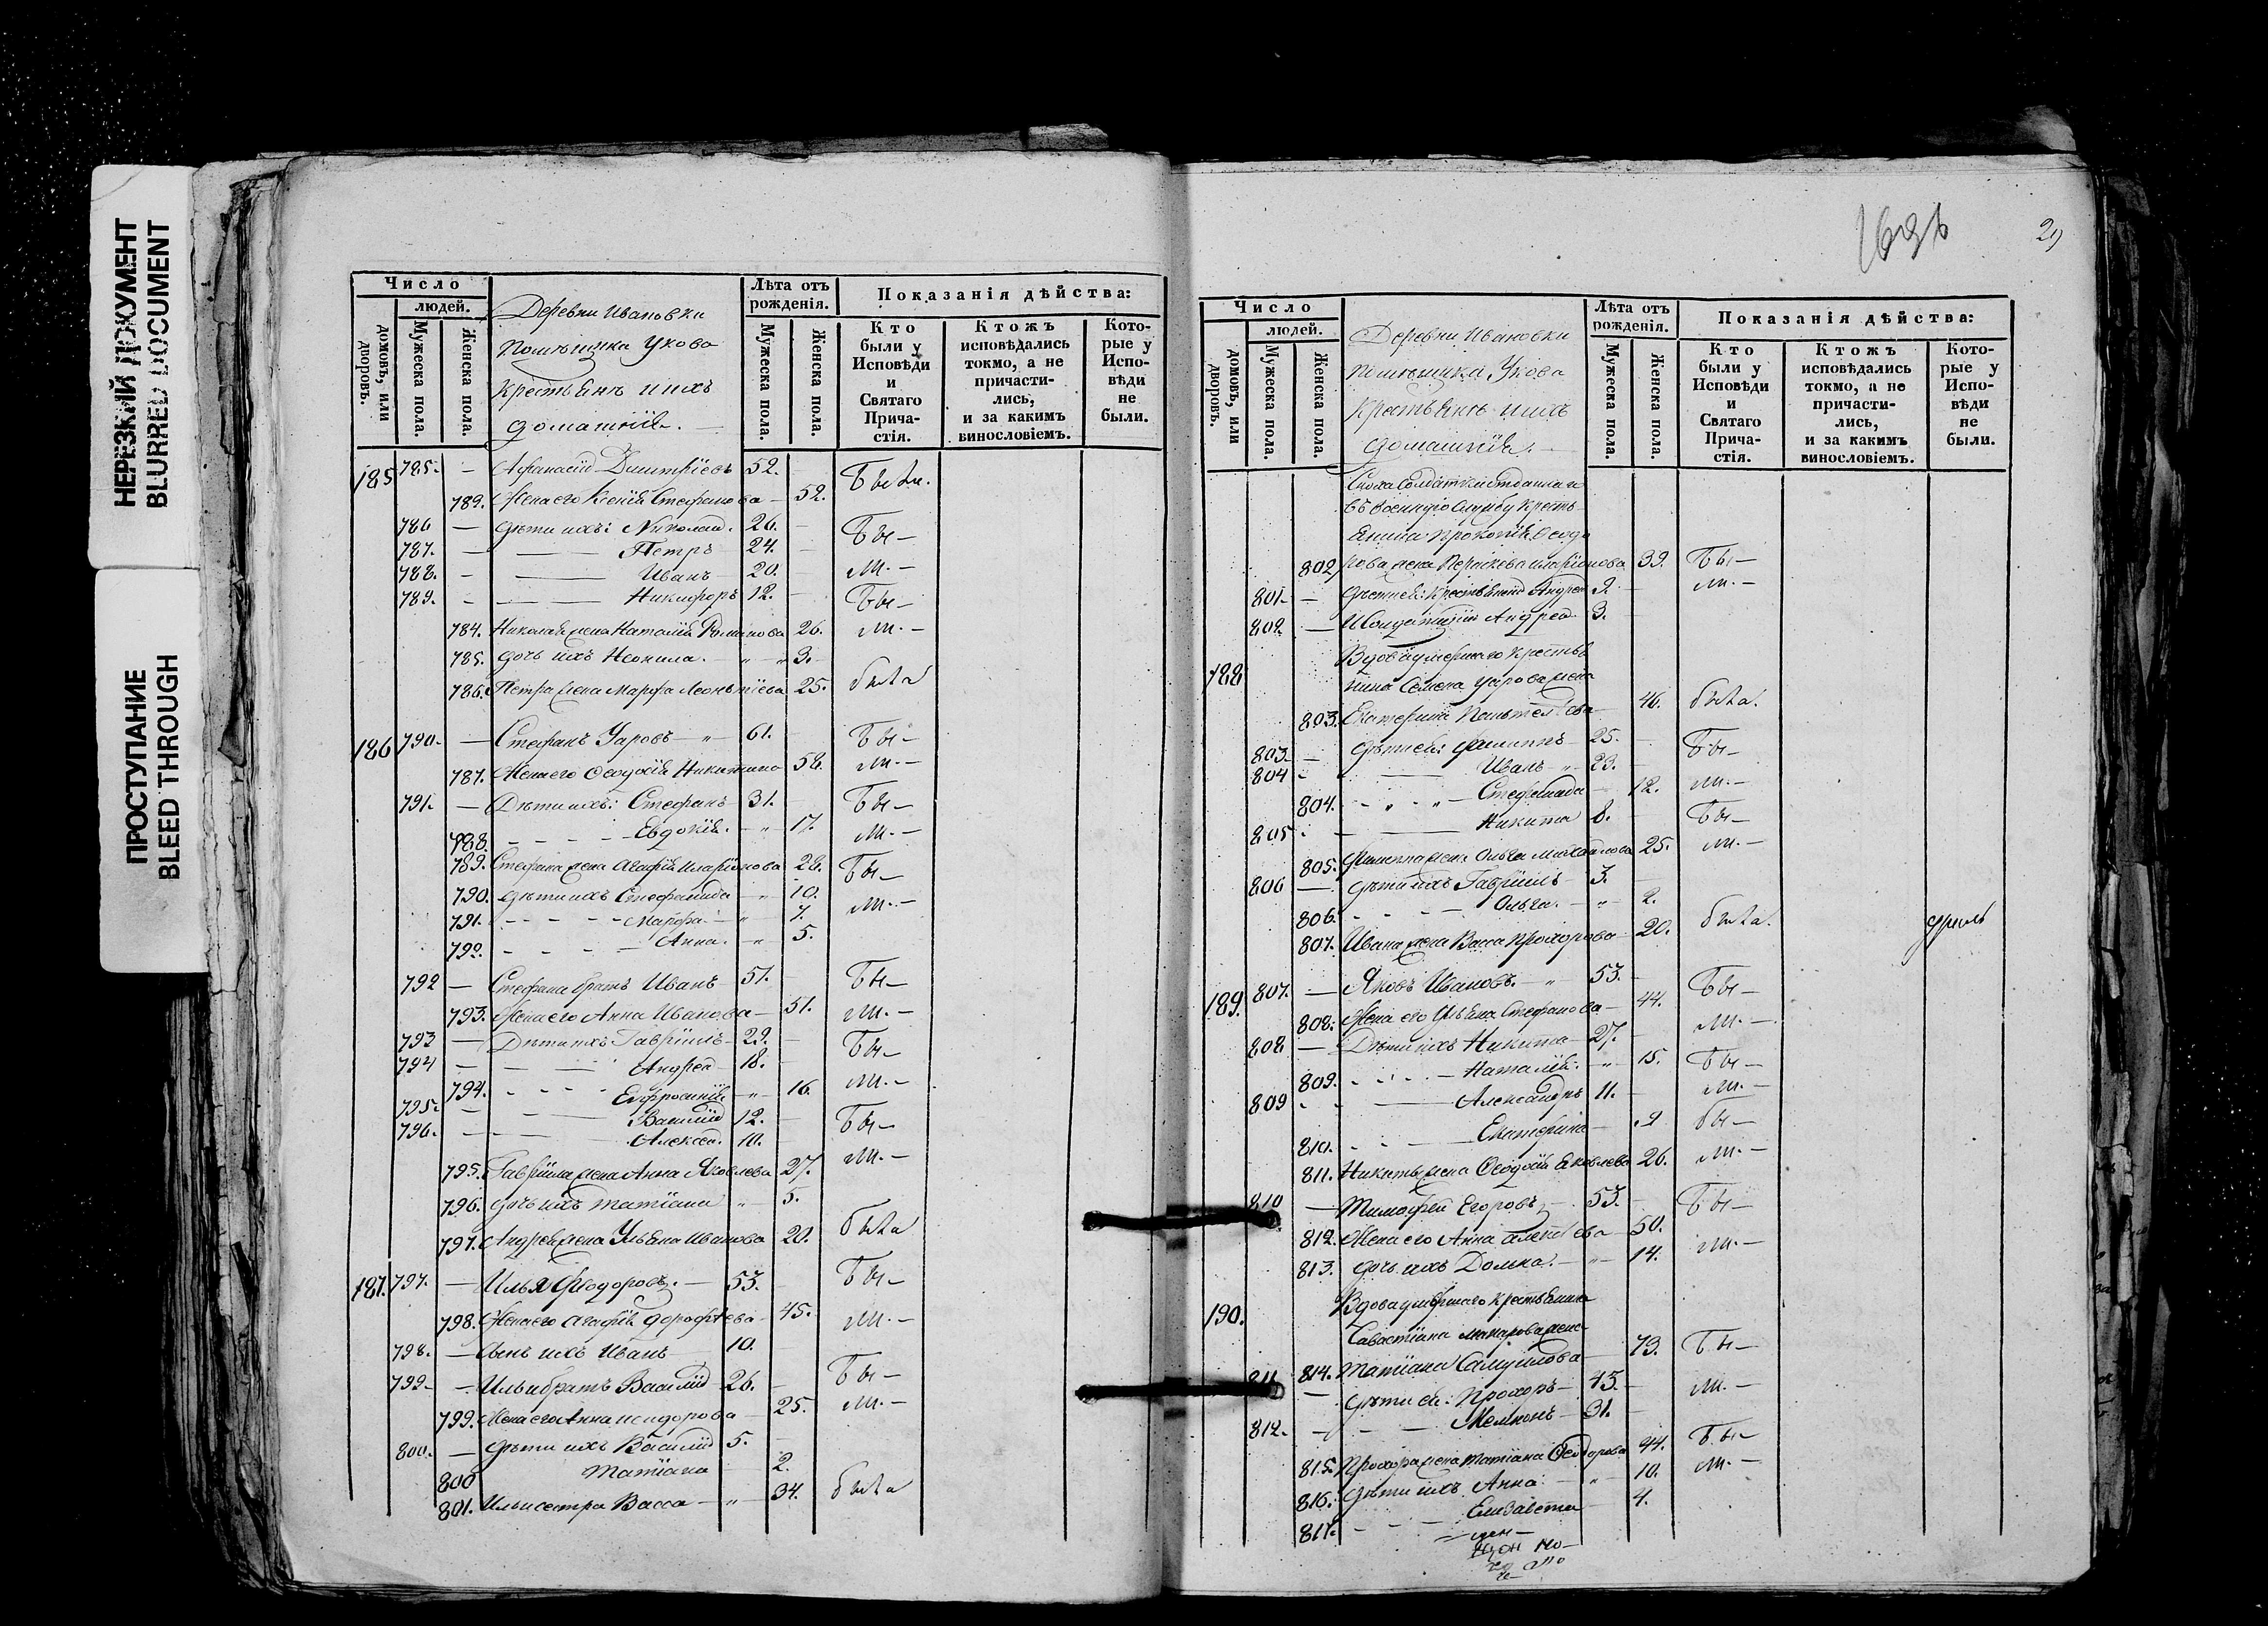 НЕРЕЗКИЙ ДОКУМЕНТ
BLURRED DOCUMENT
ПРОСТУПАНИЕ
BLEED THROUGH
Число
людей.
домовъ, или дворовъ.
Мужеска пола.
Женска пола.
Деревни Ивановки
помѣщика Укова
крестьянъ и ихъ
домашніе.
Лѣта отъ рожденія.
Мужеска пола.
Женска пола.
Показанія дѣйства:
Кто были у Исповѣди и Святаго Прича-стія.
Ктожъ исповѣдались токмо, а не причасти-лись, и за какимъ винословіемъ.
Кото-рые у Испо-вѣди не были.
185 785. — Афанасій Дмитріевъ 52. — Были.
789. Жена его Ксенія Стефанова — 52.
786 — дѣти ихъ: Николай. 26. — Бы—
787. — Петръ 24. —
788. — Иванъ 20. — ли. —
789. — Никифоръ 12. — Бы—
784. Николая жена Наталія Романова 26. ли. —
785. дочь ихъ Неонила. — 3.
786. Петра жена Марфа Леонтіева 25. была
186 790. — Стефанъ Уаровъ — 61. Бы—
787. Жена его Ѳеодосія Никитина 58. ли. —
791. — Дѣти ихъ: Стефанъ 31. Бы—
788. — Евдокія. — 17. ли. —
789. Стефана жена Агафія Иларіонова 28. Бы—
790. дѣти ихъ Стефанида — 10.
791. — Марфа — 7. ли. —
792. — Анна. — 5.
792 — Стефана братъ Иванъ 51. Бы—
793. Жена его Анна Иванова — 51. ли. —
793 — Дѣти ихъ Гавріилъ 29. —
794 — Андрей 18. — Бы—
794. — Евфросинія — 16. ли. —
795. — Василій 12. — Бы—
796. — Алексѣй. 10. —
795. Гавріила жена Анна Яковлева 27. ли. —
796. дочь ихъ Татіана — 5.
797. Андрея жена Ульяна Иванова 20. была
187. 797. — Илья Ѳеодоровъ. — 53. Бы—
798. Жена его Агафія Дорофѣева — 45. ли. —
798. — Сынъ ихъ Иванъ 10.
799. — Ильи братъ Василій 26. — Бы—
799. Жена его Анна Исидорова — 25. ли. —
800. — дѣти ихъ Василій 5. —
800 Татіана 2.
801. Ильи сестра Васса — 34. была
21
Число
людей.
домовъ, или дворовъ.
Мужеска пола.
Женска пола.
Деревни Ивановки
помѣщика Укова
крестьянъ ихъ
домашніе.
Лѣта отъ рожденія.
Мужеска пола.
Женска пола.
Показанія дѣйства:
Кто были у Исповѣди и Святаго Прича-стія.
Ктожъ исповѣдались токмо, а не причасти-лись, и за какимъ винословіемъ.
Кото-рые у Испо-вѣди не были.
солдатки отданнаго
въ военную службу кресть
янина Прокопія Ѳеодо
802 рова жена Параскева Иларіонова 39. Бы—
801. — дѣти ей: Андрей 9. — ли. —
802. — Андрей 3.
188 Вдова умершаго крестья
нина Семена Уарова жена
803. Екатерина Пантел ѣева 46. была.
803. — дѣти ей: Филиппъ 25. —
804 — Иванъ — 23. — Бы—
804. — Стефанида 12. ли. —
805 — Никита 8. Бы—
805. Филиппа жена Ольга Михайлова 25. ли. —
806 — дѣти ихъ Гавріилъ 3.
806. — Ольга. — 2.
807. Ивана жена Васса Прохорова 20. была.
189. 807. — Яковъ Ивановъ. — 53. — Бы—
808. Жена его Ульяна Стефанова — 44. ли. —
808 — Дѣти ихъ Никита 27. —
809. — Наталія. — 15. Бы—
809 — Александръ 11. — ли. —
810. — Екатерина 9 Бы—
811. Никиты жена Ѳеодосія Яковлева 26. ли. —
810 — Тимофей Егоровъ 53. — Бы—
812. Жена его Анна Алексѣева — 50.
813. дочь ихъ Домна. — 14. ли. —
190. Вдова умершаго крестьянина
Савастіана Макарова жена
814. Татіана Самуилова 73. Бы—
811 — дѣти ей: Прохоръ 45. — ли. —
812. — Мемнонъ 31. —
815. Прохора жена Татіана Ѳеодорова 44. Бы—
816. дѣти ихъ Анна — 10. ли. —
817. — Елизавета 4.